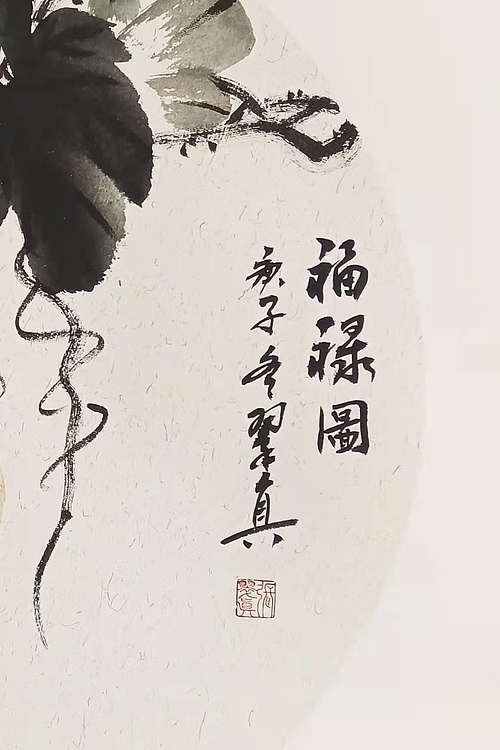 福祿圖
庚子冬翠真